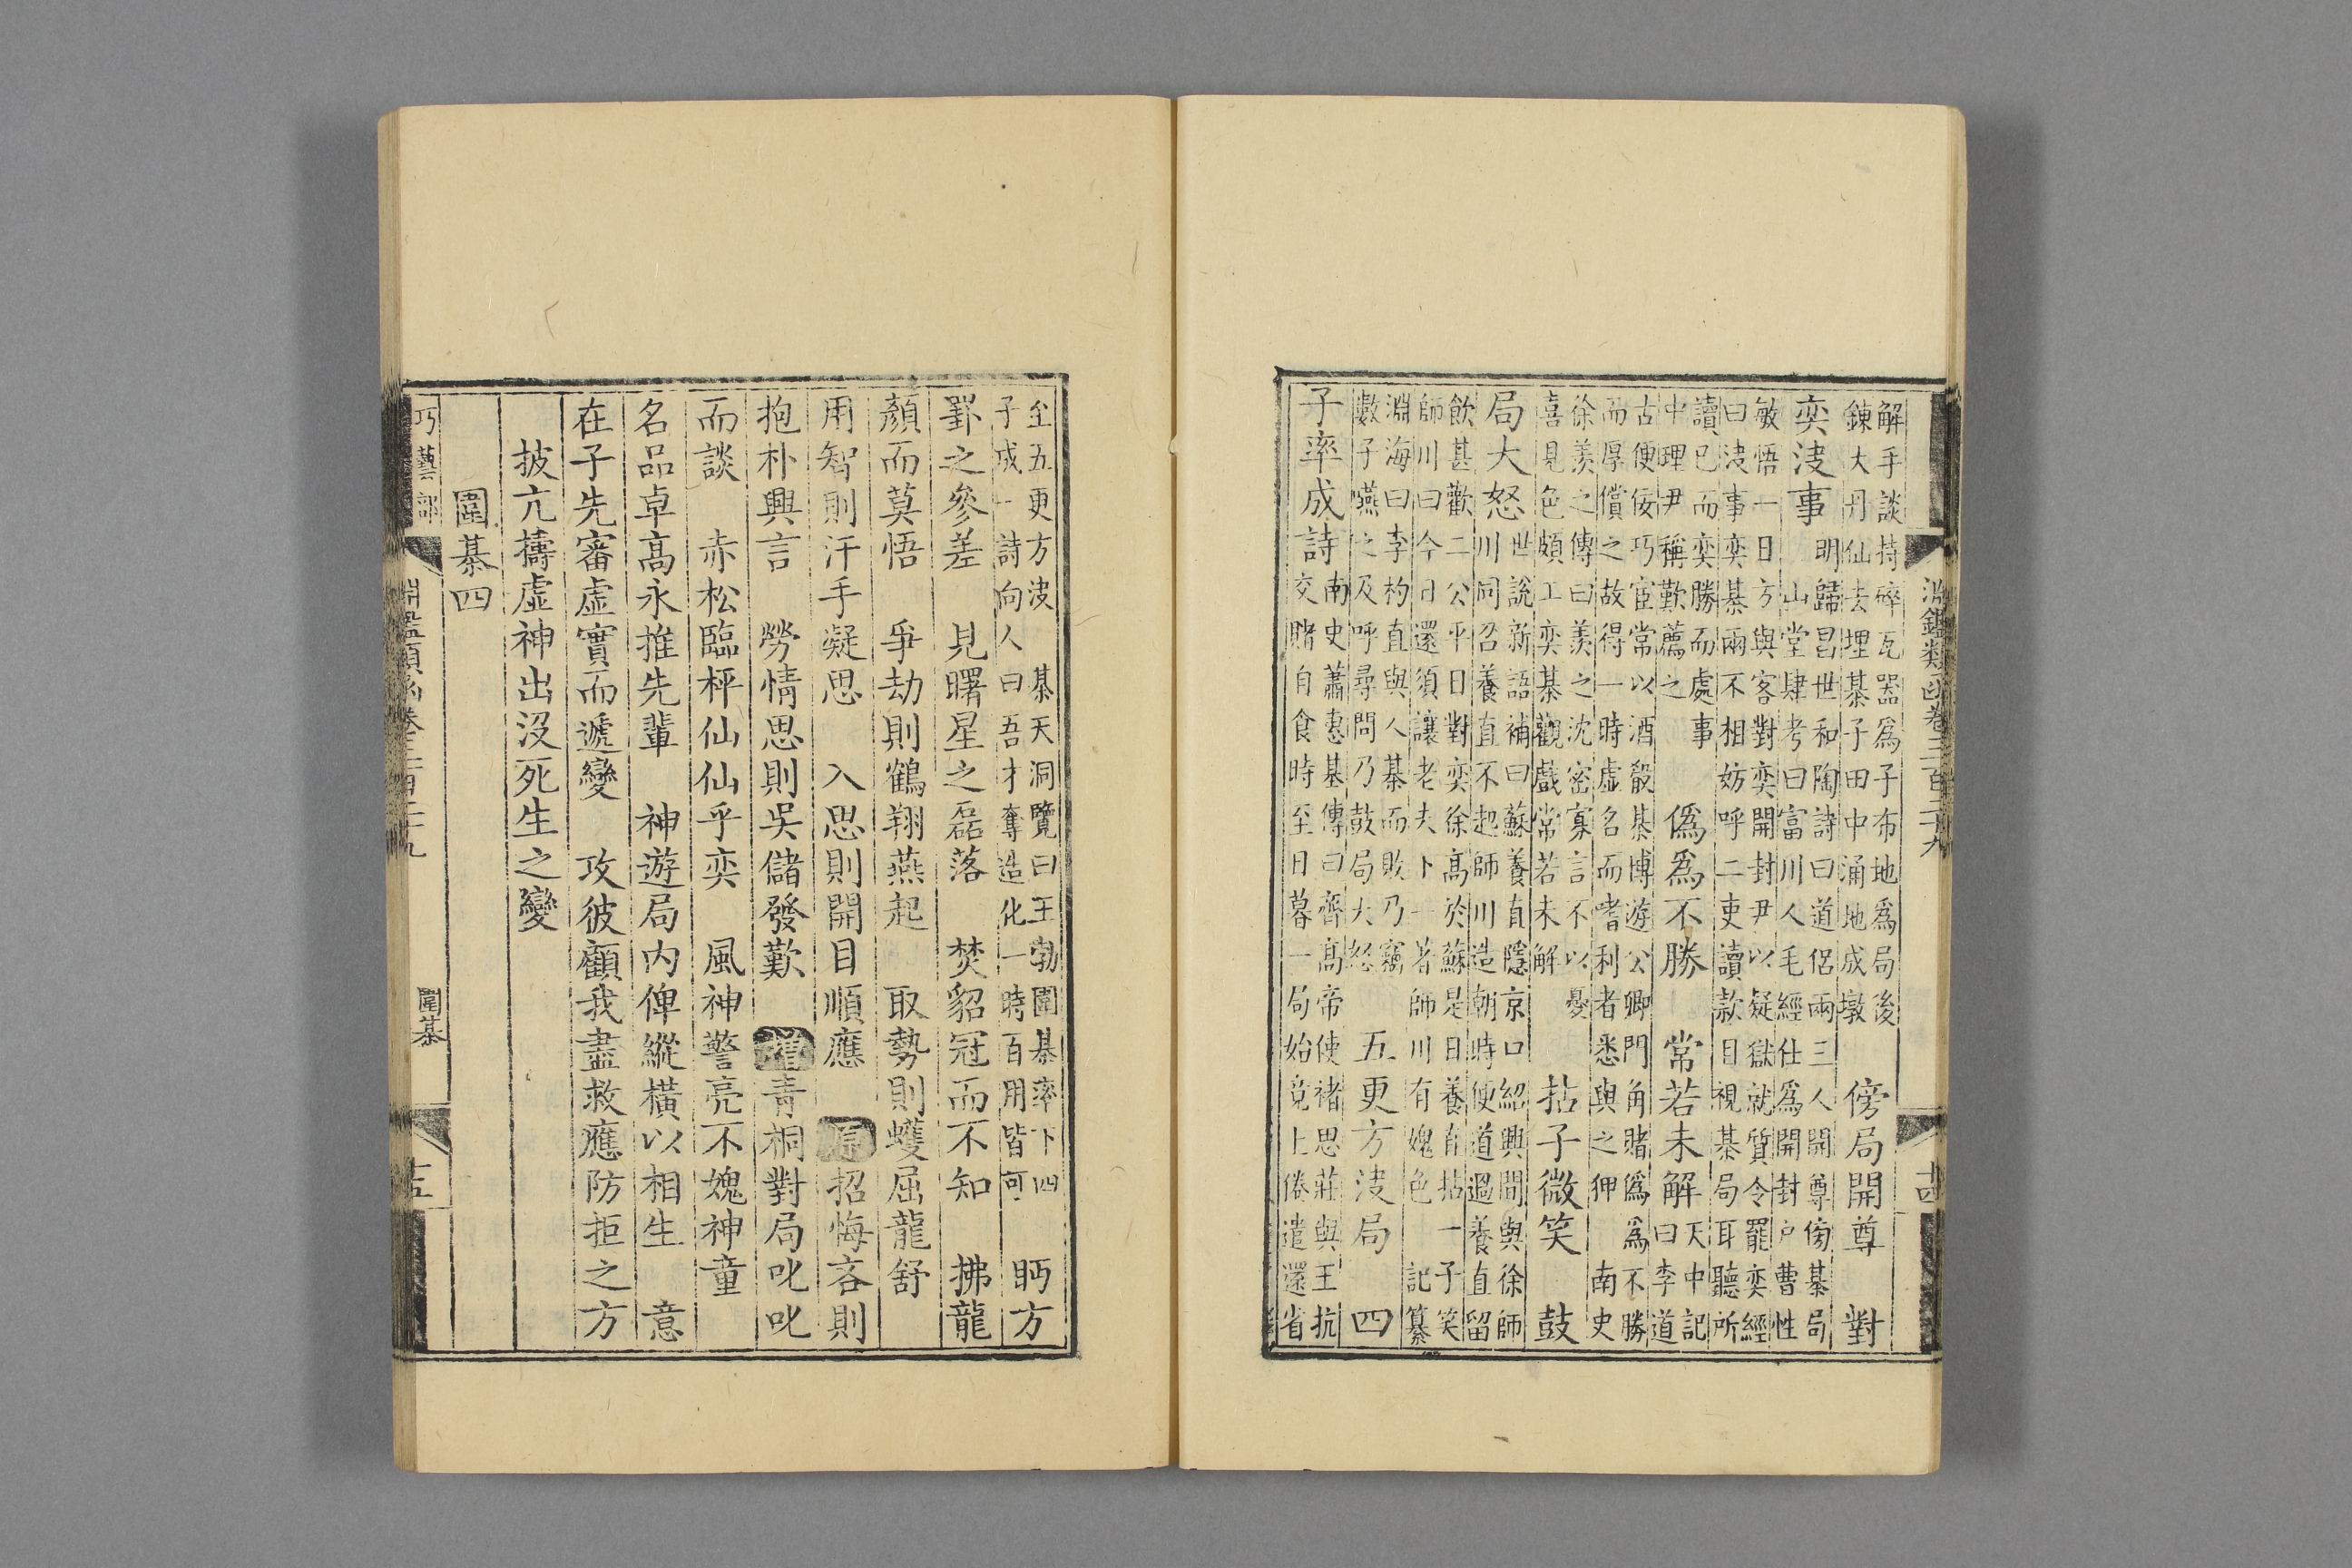 淵鑑類函卷三百二十九 十四
解手談持碎瓦器爲子布地爲局後
錬大丹仙去埋棊子田中涌地成墩
傍局開尊 對
奕決事
明歸昌世和陶詩曰道侶兩三人開尊傍棊局
山堂肆考曰富川人毛經仕爲開封户曹性
敏悟一日方與客對奕開封尹以疑獄就質令罷奕經
曰決事奕棊兩不相妨呼二吏讀款目視棊局耳聽所
讀已而奕勝而處事
中理尹稱歎薦之
僞爲不勝 常若未解
天中記
曰李道
古便佞巧宦常以酒殽棊博遊公卿門角賭僞爲不勝
而厚償之故得一時虚名而嗜利者悉與之狎 南史
徐羨之傳曰羨之沈密寡言不以憂
喜見色頗工奕棊觀戲常若未解
拈子微笑 鼓
局大怒
世說新語補曰蘇養直隱京口紹興間與徐師
川同召養直不起師川造朝時便道過養直留
飲甚歡二公平日對奕徐高於蘇是日養直拈一子笑
師川曰今日還須讓老夫下一著師川有媿色 記纂
淵海曰李杓直與人棊而敗乃竊
數子嚥之及呼尋問乃鼓局大怒
五更方決局 四
子率成詩
南史蕭惠基傳曰齊高帝使褚思莊與王抗
交賭自食時至日暮一局始竟上倦遣還省
至五更方決 棊天洞覽曰王勃圍棊率下四
子成一詩向人曰吾才奪造化一時百用皆可
眄方
罫之參差 見曙星之磊落 焚貂冠而不知 拂龍
顏而莫悟 爭劫則鶴翔燕起 取勢則蠖屈龍舒
用智則汗手凝思 入思則開目順應 原招悔吝則
抱朴興言 勞情思則吳儲發歎 增青桐對局叱叱
而談 赤松臨枰仙仙乎奕 風神警亮不媿神童
名品卓高永推先輩 神遊局内俾縱橫以相生 意
在子先審虛實而遞變 攻彼顧我盡救應防拒之方
披亢擣虛神出沒死生之變
圍棊四
巧藝部 淵鑑類函卷三百二十九 圍棊 十五